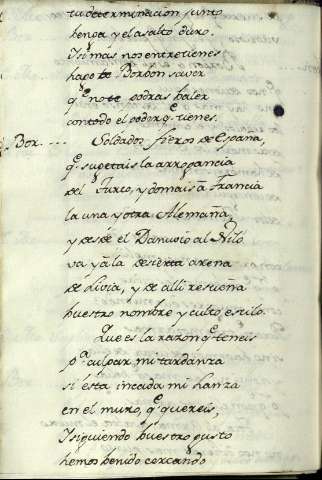 tu determinacion, junto
benga y el asalto duro.
I si más nos entretienes
hago te Borbon saver
q.e no te podras baler
con todo el poder q.e tienes.
Bor.... Soldados fieros de España,
q.e sugetais la arrogancia
del Turco, y domais á Francia
la una y otra Alemaña,
y desde el Danuvio al Nilo
va y á la desierta arena
de Livia, y de alli resuena
buestro nombre y culto estilo.
Que es la razon q.e teneis
p.a culpar mi tardanza
si ésta incada mi lanza
en el muro, q.e quereis,
I siguiendo buestro gusto
hemos benido cercando